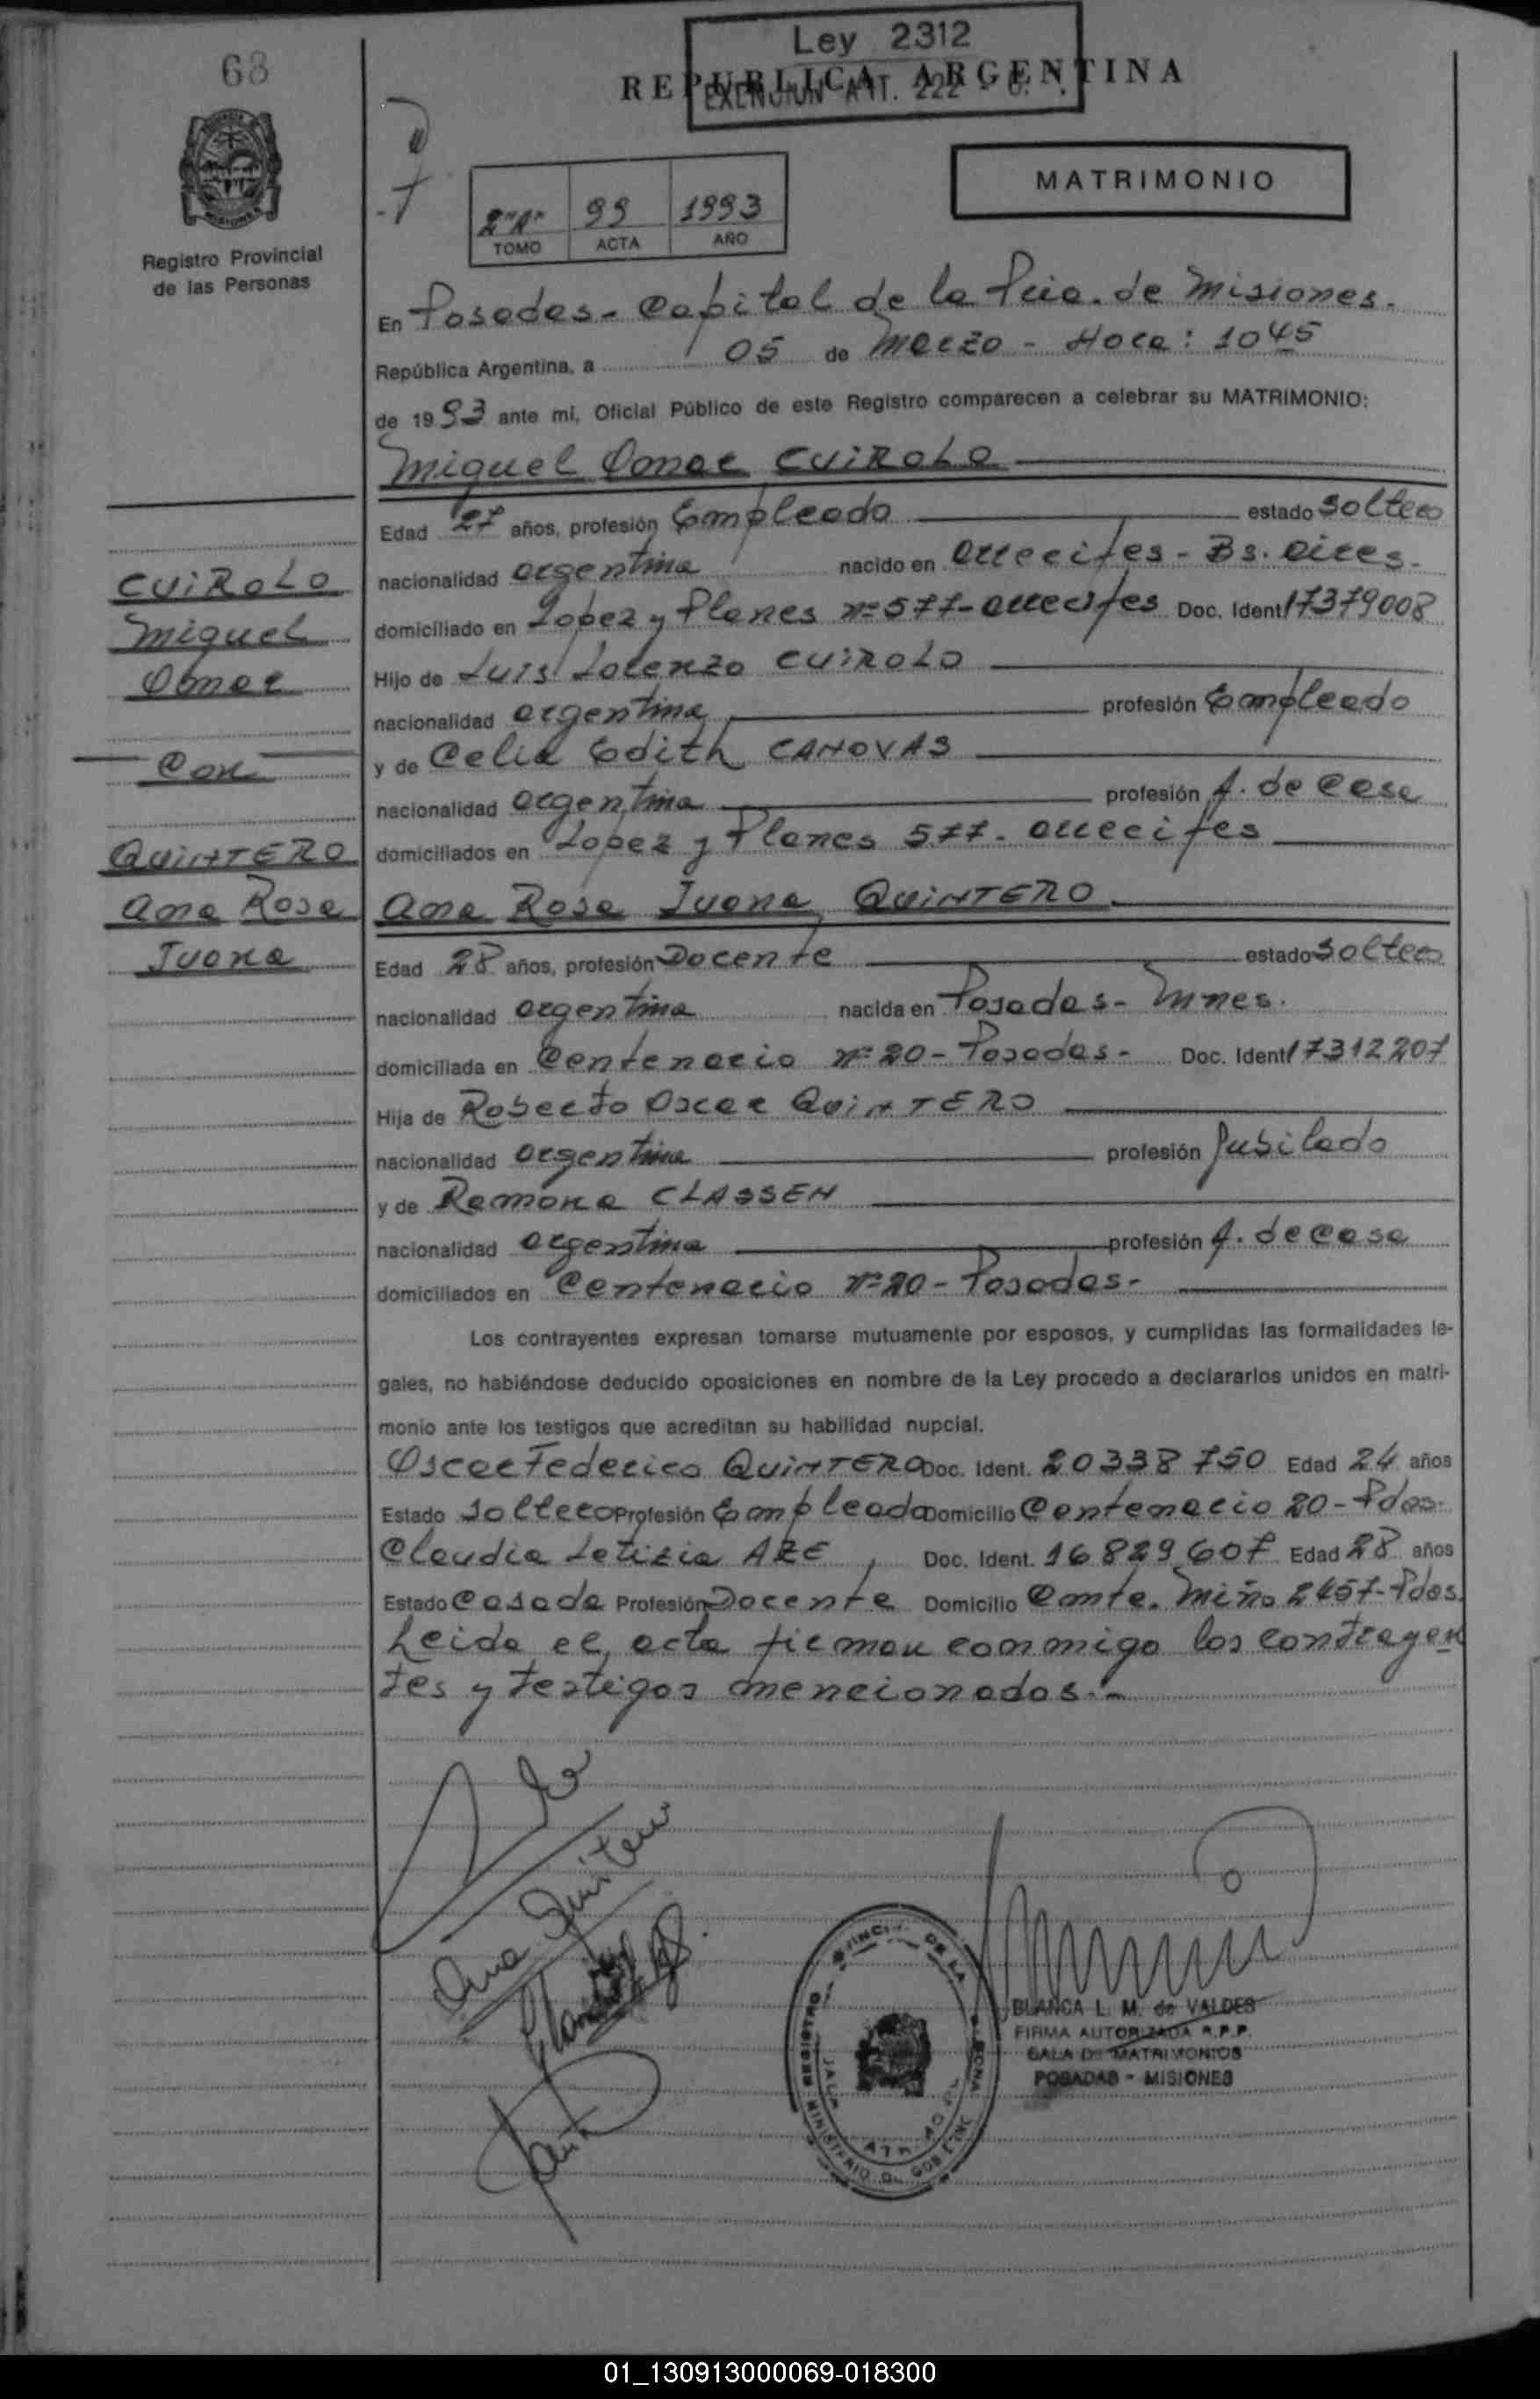 68
Ley 2312
REPUBLICA ARGENTINA
EXENCION ART. 222
MATRIMONIO
2º"A" 99 1993
TOMO ACTA AÑO
Registro Provincial
de las Personas
En Posadas - Capital de la Pcia. de Misiones.
República Argentina, a 05 de Marzo - Hora: 1045
de 1993 ante mi, Oficial Público de este Registro comparecen a celebrar su MATRIMONIO:
Miguel Omar CUIROLO
Edad 27 años, profesión Empleado estado Soltero
nacionalidad argentina nacido en Arrecifes - Bs. Aires.
domiciliado en Lopez y Planes nº 577 - Arrecifes Doc. Ident 17379008
Hijo de Luis Lorenzo CUIROLO
nacionalidad argentina profesión Empleado
y de Celia Edith CANOVAS
nacionalidad argentina profesión A. de Casa
domiciliados en Lopez y Planes 577 - Arrecifes
CUIROLO
Miguel
Omar
Con
QUINTERO
Ana Rosa
Juana
Ana Rosa Juana QUINTERO
Edad 28 años, profesión Docente estado Soltera
nacionalidad argentina nacida en Posadas - Mnes.
domiciliada en Centenario nº 20 - Posadas - Doc. Ident 17312207
Hija de Roberto Oscar QUINTERO
nacionalidad argentina profesión Jubilado
y de Ramona CLASSEN
nacionalidad argentina profesión A. de Casa
domiciliados en Centenario nº 20 - Posadas -
Los contrayentes expresan tomarse mutuamente por esposos, y cumplidas las formalidades le-
gales, no habiéndose deducido oposiciones en nombre de la Ley procedo a declararlos unidos en matri-
monio ante los testigos que acreditan su habilidad nupcial.
Oscar Federico QUINTERO Doc. Ident. 20338750 Edad 24 años
Estado Soltero Profesión Empleado Domicilio Centenario 20 - Pdas.
Claudia Leticia ARE Doc. Ident. 16829607 Edad 28 años
Estado Casada Profesión Docente Domicilio Comte. Miño 2457 - Pdas.
Leida el acta firman conmigo los contrayen
tes y testigos mencionados.-
Ana Quintero
BLANCA L. M. de VALDES
FIRMA AUTORIZADA R.P.P.
SALA DE MATRIMONIOS
POSADAS - MISIONES
01_130913000069-018300